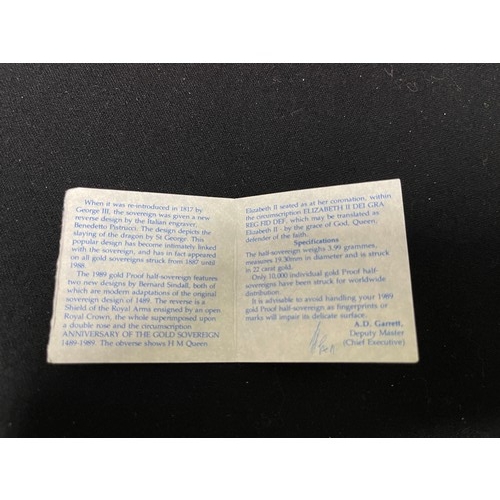 When it was re-introduced in 1817 by
George III, the sovereign was given a new
reverse design by the Italian engraver
Benedetto Pistrucci. The design depicts the
slaying of the dragon by St George. This
popular design has become intimately linked
with the sovereign, and has in fact appeared
on all gold sovereigns struck from 1887 until
1988.
The 1989 gold Proof half-sovereign features
two new designs by Bernard Sindall, both of
which are modern adaptations of the original
sovereign design of 1489. The reverse is a
Shield of the Royal Arms ensigned by an open
Royal Crown, the whole superimposed upon
a double rose and the circumscription
ANNIVERSARY OF THE GOLD SOVEREIGN
1489-1989. The obverse shows H M Queen
Elizabeth II seated as at her coronation, within
the circumscription ELIZABETH II DEI GRA
REG FID DEF, which may be translated as
Elizabeth II - by the grace of God, Queen,
defender of the faith.
Specifications
The half-sovereign weighs 3.99 grammes,
measures 19.30mm in diameter and is struck
in 22 carat gold.
Only 10,000 individual gold Proof half-
sovereigns have been struck for worldwide
distribution.
It is advisable to avoid handling your 1989
gold Proof half-sovereign as fingerprints or
marks will impair its delicate surface.
A.D. Garrett,
Deputy Master
(Chief Executive)